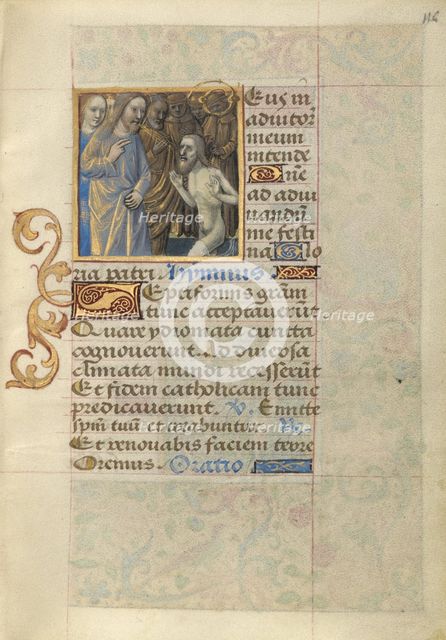 116
Eus in
adiutor
meum
intende
Dne
ad adiu
uandu
me festi
na Glo
ria patri Hymnus
Septiformis gram
tunc acceptauerut
Quare ydiomata cuncta
cognouerunt. Ad diuersa
climata mundi recesserut
Et fidem catholicam tunc
predicauerunt. V. Emitte
spm tuu et creabuntur. R.
Et renouabis faciem terre
Oremus. Oratio
Heritage
Heritage
Heritage
Heritage
Heritage
Heritage
Heritage